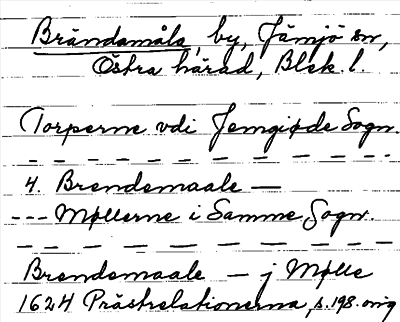 Brändamåla, by, Jämjö sn,
Östra härad, Blek. l.
Torperne vdi Jemgiøde Sogn.
— — — — — — — — — —
4. Brendemaale —
--- Møllerne i Samme Sogn.
— — — — — — — — — —
Brendemaale — j Mølle
1624 Prästrelationerna, s. 198. orig